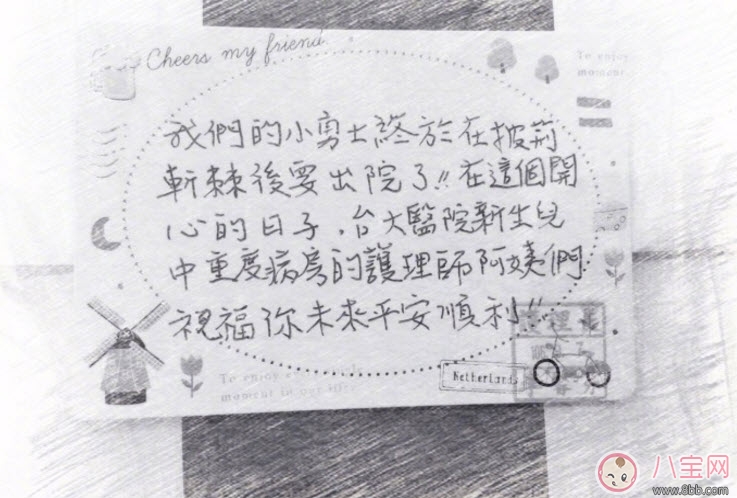 Cheers my friend.
To enjoy
moment
我們的小勇士終於在披荊
斬棘後要出院了!!在這個開
心的日子,台大醫院新生兒
中重度病房的護理師阿姨們
祝福你未來平安順利!!
To enjoy
moment in our life
Netherlands
八宝网
www.8bb.com